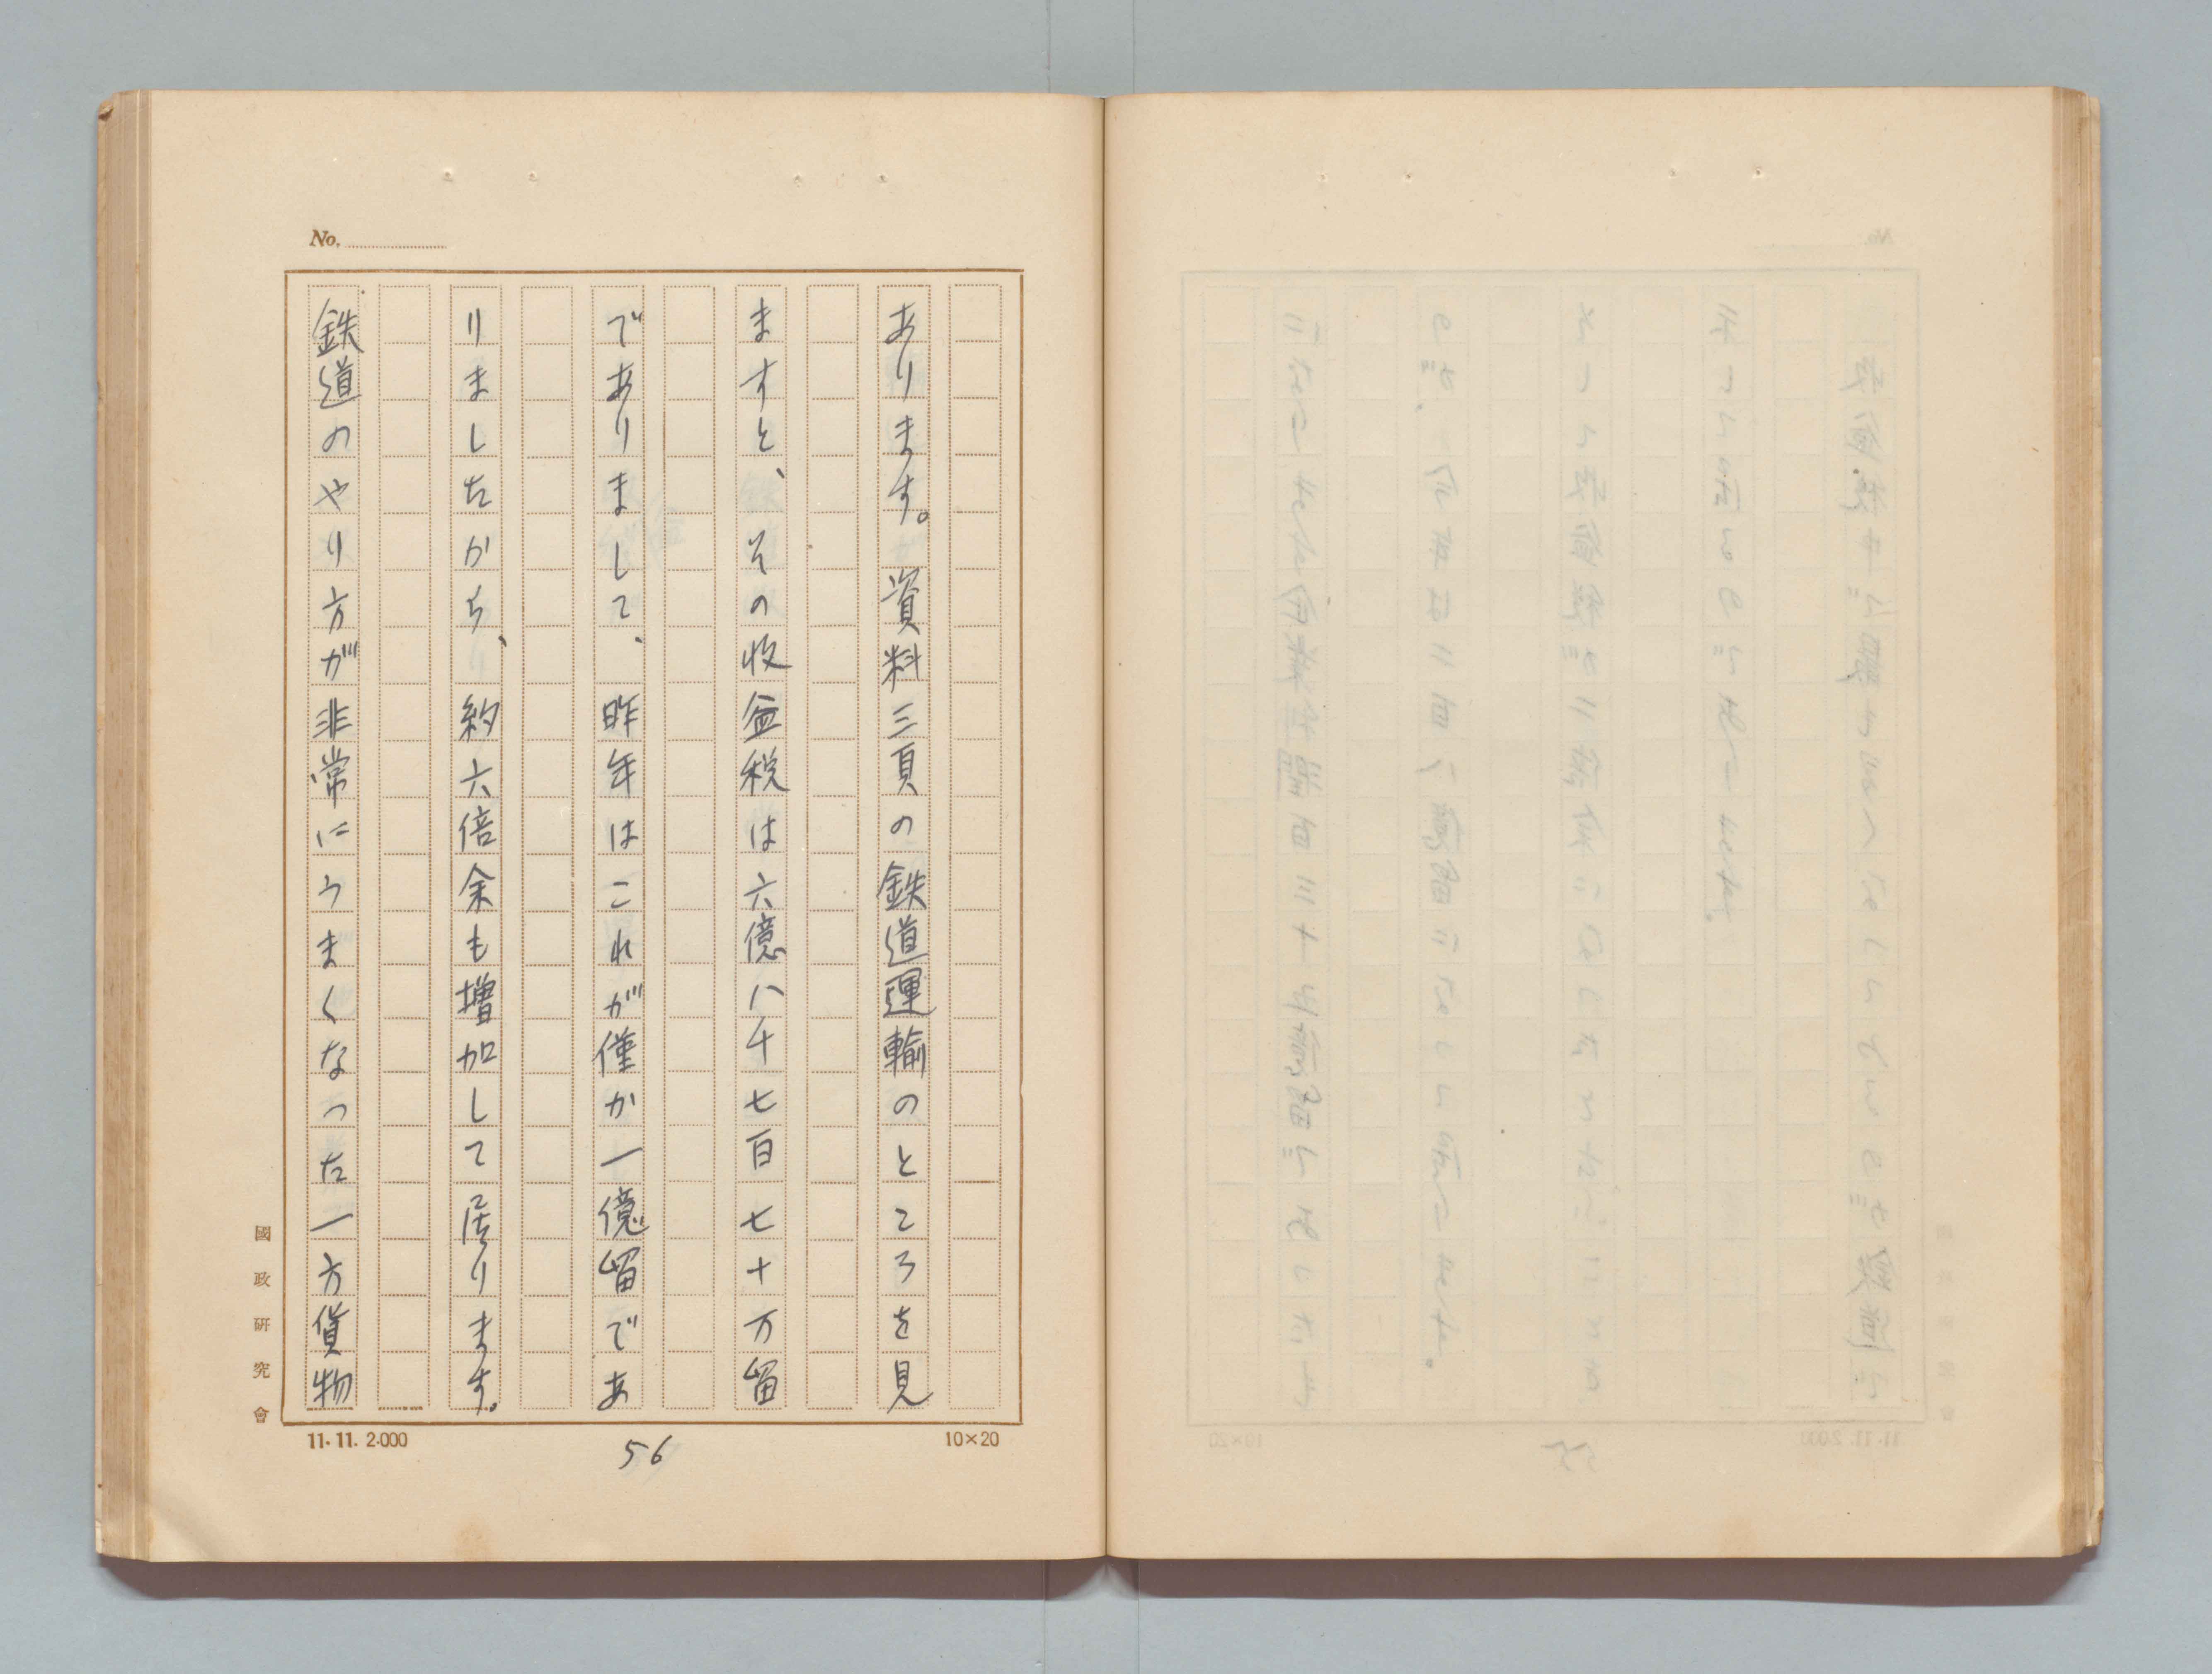 No.
あります。資料三頁の鉄道運輸のところを見
ますと、その收益税は六億八千七百七十万留
でありまして、昨年はこれが僅か一億留であ
りましたから、約六倍余も増加して居ります。
鉄道のやり方が非常にうまくなった一方貨物
國政研究會
11.11.2.000
56
10×20